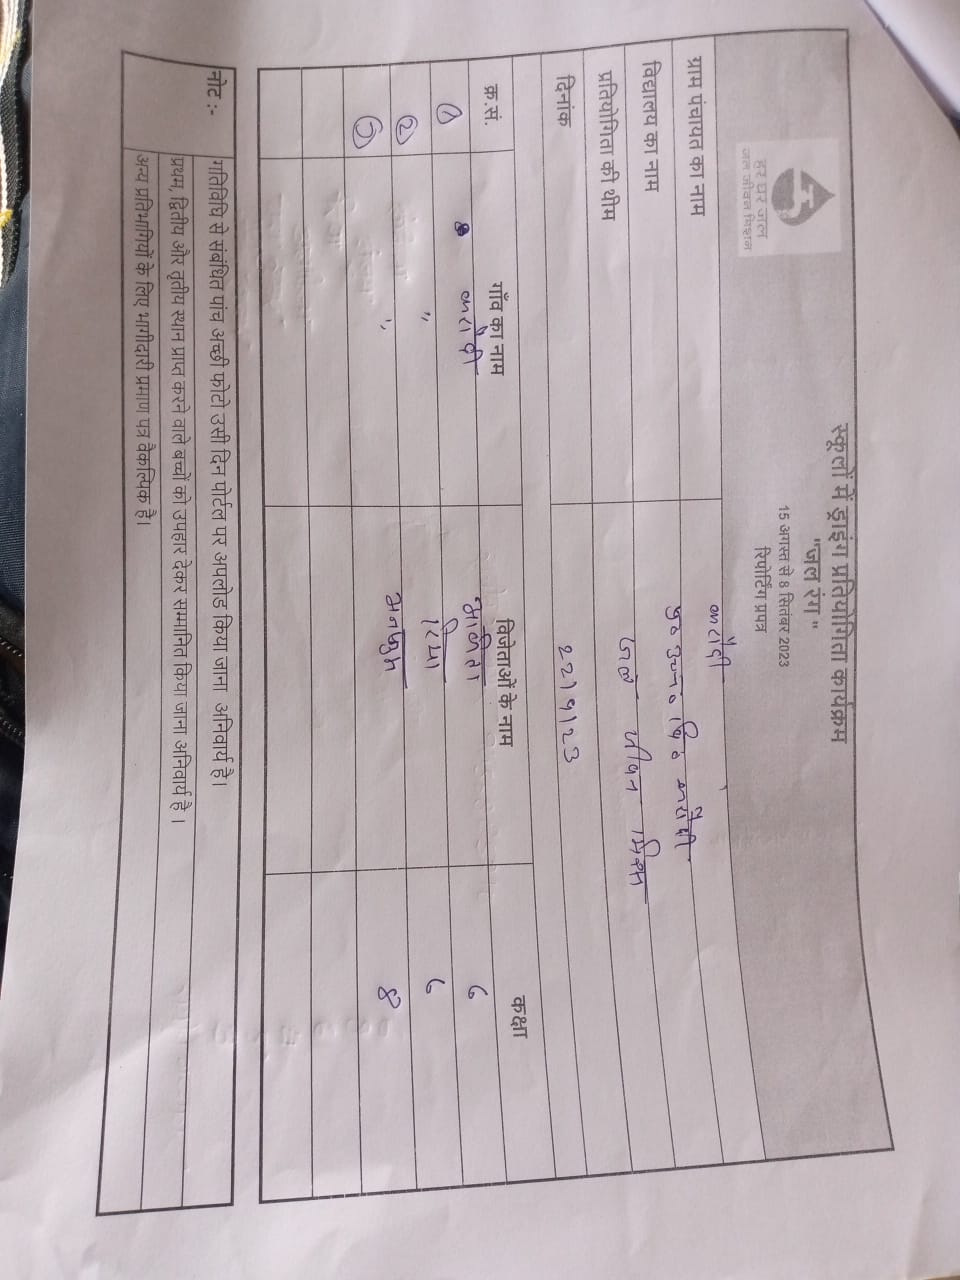 हर घर जल
जल जीवन मिशन
स्कूलों में ड्राइंग प्रतियोगिता कार्यक्रम
"जल रंग"
15 अगस्त से 8 सितंबर 2023
रिपोर्टिंग प्रपत्र
ग्राम पंचायत का नाम
विद्यालय का नाम
प्रतियोगिता की थीम जल जीवन मिशन
दिनांक 22/9/23
क्र.सं. गाँव का नाम विजेताओं के नाम कक्षा
1 6
2 " 6
3 " 8
नोट :- गतिविधि से संबंधित पांच अच्छी फोटो उसी दिन पोर्टल पर अपलोड किया जाना अनिवार्य है।
प्रथम, द्वितीय और तृतीय स्थान प्राप्त करने वाले बच्चों को उपहार देकर सम्मानित किया जाना अनिवार्य है ।
अन्य प्रतिभागियों के लिए भागीदारी प्रमाण पत्र वैकल्पिक है।